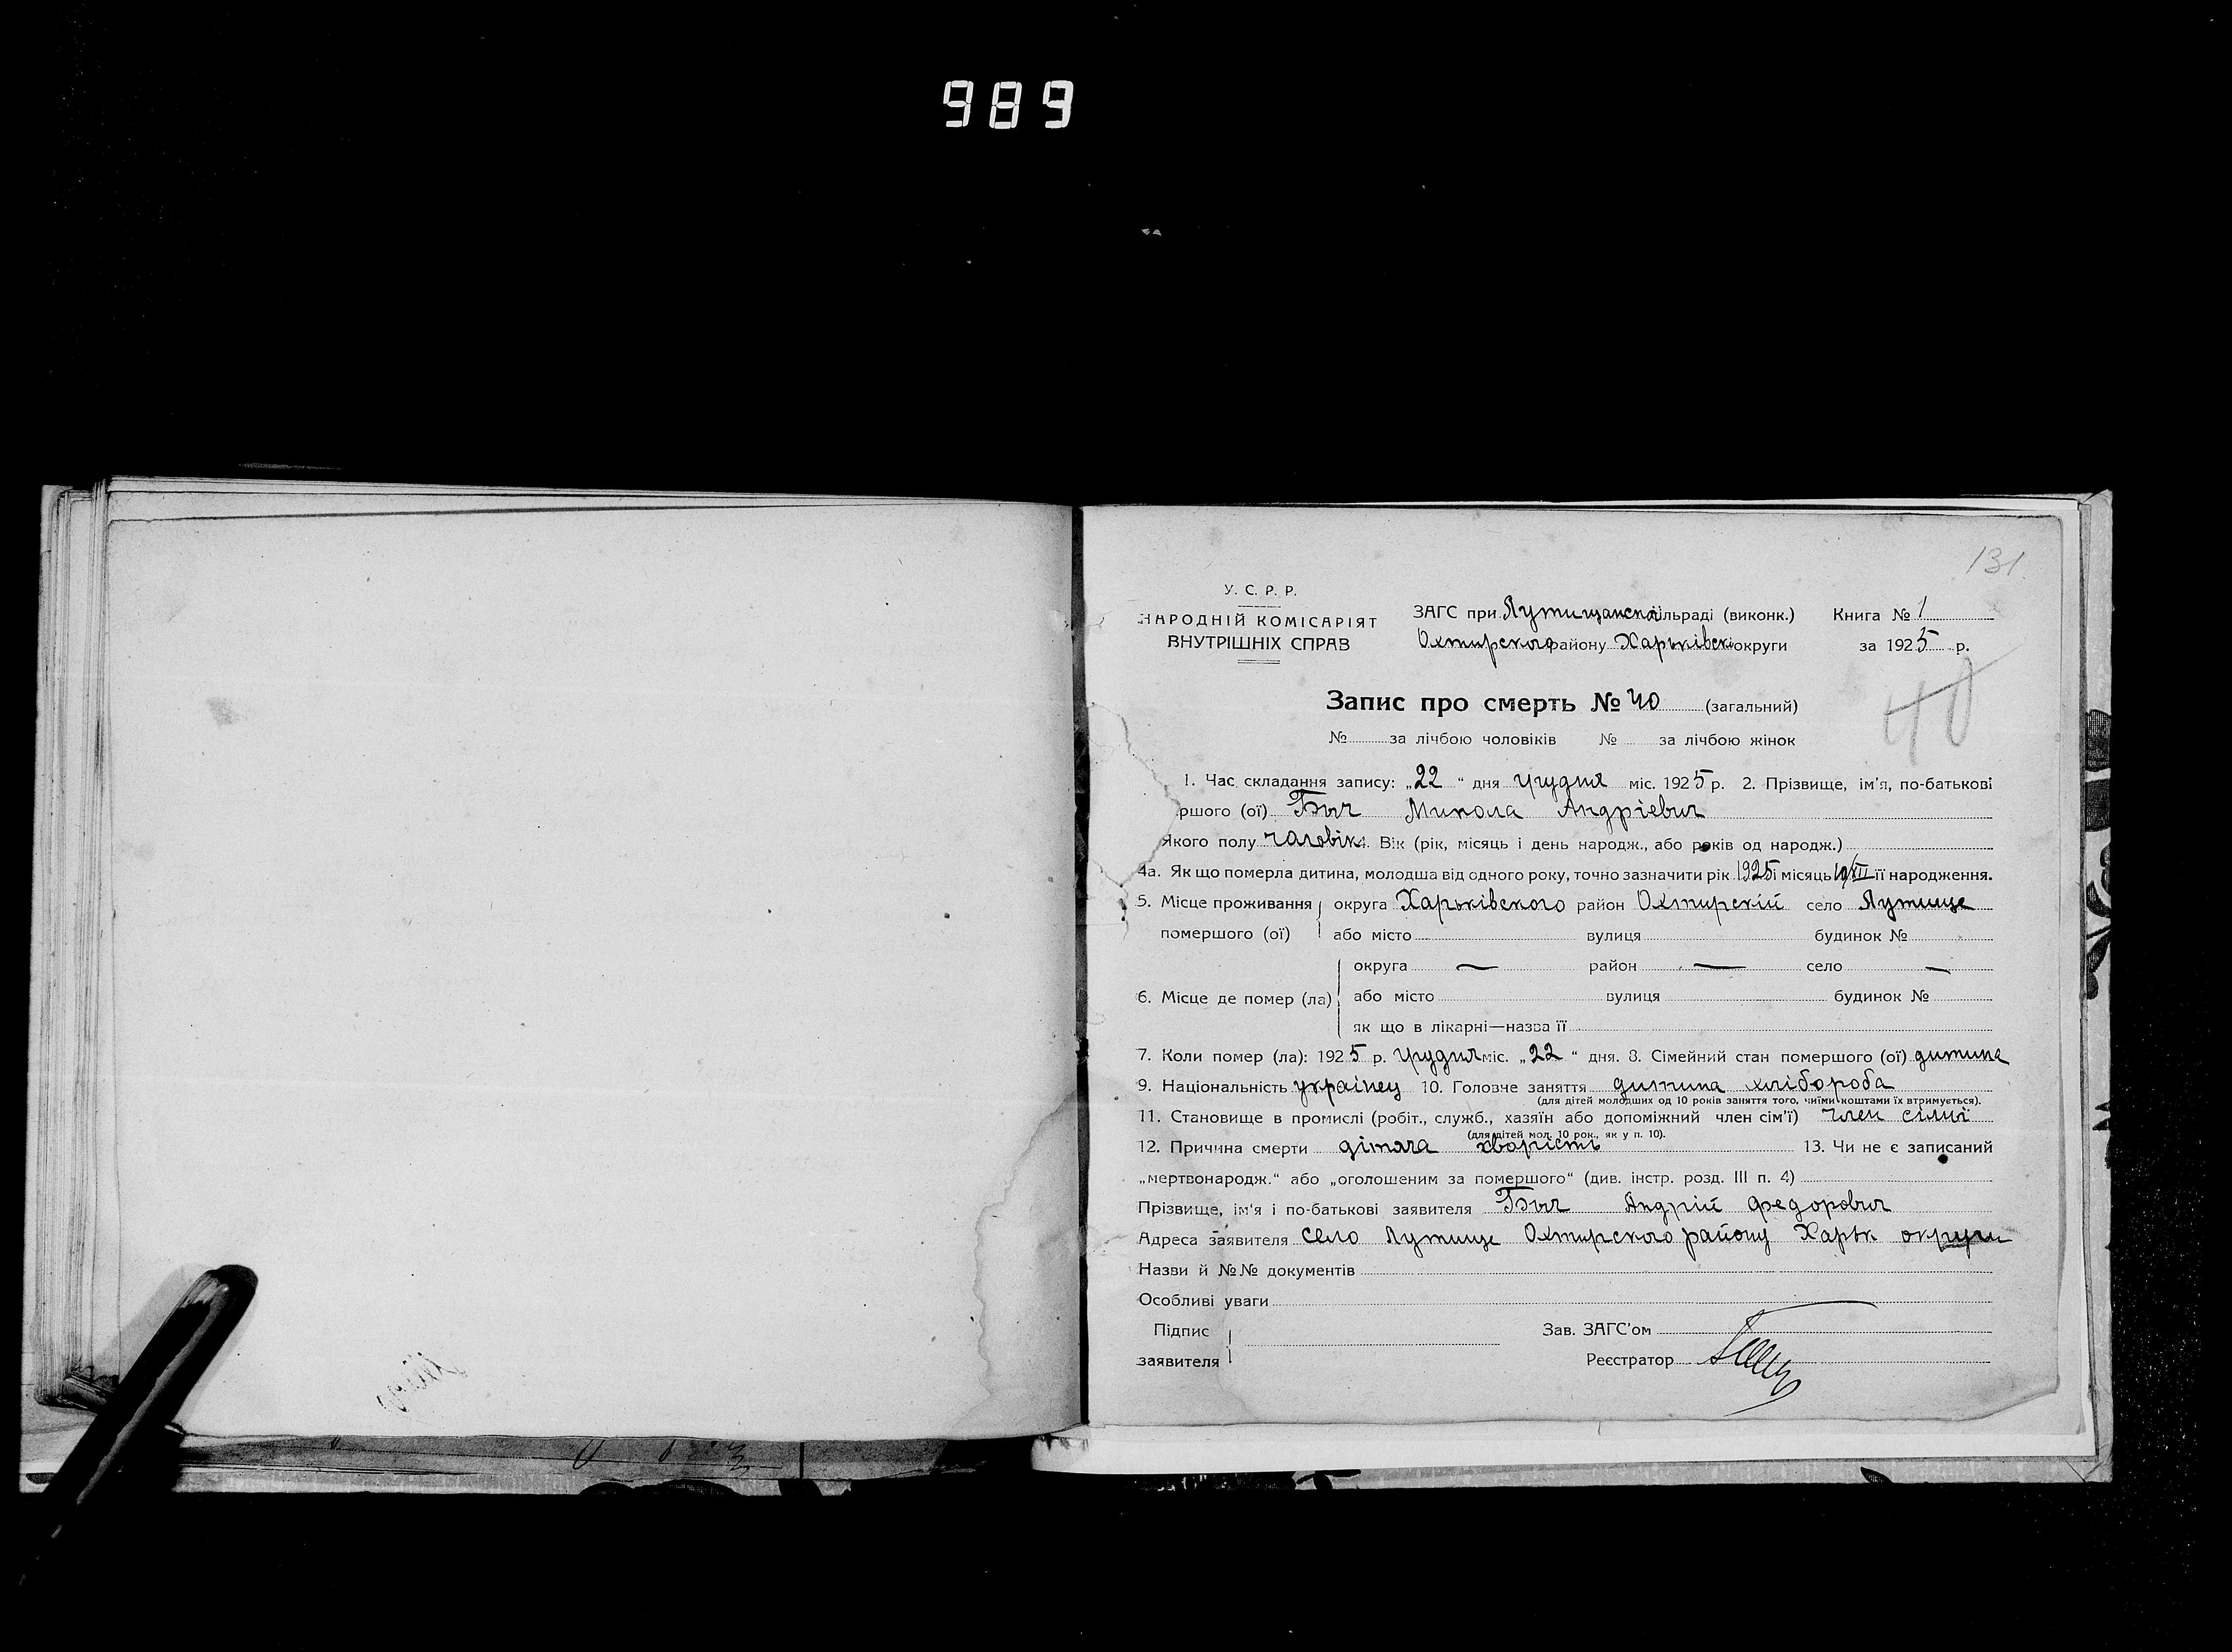 989
131
У. С. Р. Р.
НАРОДНІЙ КОМІСАРІЯТ
ВНУТРІШНІХ СПРАВ
ЗАГС при Лутищанскої сільраді (виконк.) Книга № 1
Охтирского району Харьківскі округи за 1925 р.
40
Запис про смерть № 40 (загальний)
№ за лічбою чоловіків № за лічбою жінок
1. Час складання запису: „22“ дня грудня міс. 1925 р. 2. Прізвище, ім'я, по-батькові
ршого (ої) Быч Микола Андріевич
Якого полу чаловік 4. Вік (рік, місяць і день народж., або років од народж.)
4а. Як що померла дитина, молодша від одного року, точно зазначити рік 1925 і місяць 19/XII її народження.
5. Місце проживання округа Харьківского район Охтирскій село Лутище
помершого (ої) або місто вулиця будинок №
округа — район — село —
6. Місце де помер (ла) або місто вулиця будинок №
як що в лікарні—назва її
7. Коли помер (ла): 1925 р. грудня міс. „22“ дня. 8. Сімейний стан помершого (ої) дитина
9. Національність украінец 10. Головне заняття дитина хлібороба
(для дітей молодших од 10 років заняття того, чиїми коштами їх втримується).
11. Становище в промислі (робіт., служб., хазяїн або допоміжний член сім'ї) член сімії
(для дітей мол. 10 рок., як у п. 10).
12. Причина смерти дітяча хворість 13. Чи не є записаний
„мертвонародж.“ або „оголошеним за помершого“ (див. інстр. розд. III п. 4)
Прізвище, ім'я і по-батькові заявителя Быч Андрій Федорович
Адреса заявителя село Лутище Охтирского району Харьк округи
Назви й №№ документів
Особливі уваги
Підпис Зав. ЗАГС'ом
заявителя Реєстратор